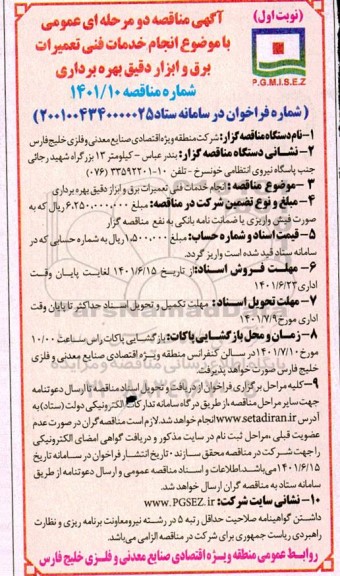 (نوبت اول)
آگهی مناقصه دو مرحله ای عمومی
با موضوع انجام خدمات فنی تعمیرات
برق و ابزار دقیق بهره برداری
P.G.M.I.S.E.Z
شماره مناقصه ۱۴۰۱/۱۰
( شماره فراخوان در سامانه ستاد ۲۰۰۱۰۰۴۳۴۰۰۰۰۰۲۵)
۱- نام دستگاه مناقصه گزار: شرکت منطقه ویژه اقتصادی صنایع معدنی و فلزی خلیج فارس
۲- نشانی دستگاه مناقصه گزار: بندر عباس - کیلومتر ۱۳ بزرگراه شهید رجائی
جنب پاسگاه نیروی انتظامی خونسرخ - تلفن ۱۰-۳۳۵۹۲۲۰۱ (۰۷۶)
۳- موضوع مناقصه : انجام خدمات فنی تعمیرات برق و ابزار دقیق بهره برداری
۴- مبلغ و نوع تضمین شرکت در مناقصه: مبلغ ۶.۲۵۰.۰۰۰.۰۰۰ ریال که به
صورت فیش واریزی یا ضمانت نامه بانکی به نفع مناقصه گزار
۵- قیمت اسناد و شماره حساب: مبلغ ۱.۵۰۰.۰۰۰ ریال به شماره حسابی که در
سامانه ستاد قید شده است واریز گردد.
۶- مهلت فروش اسناد: از تاریخ ۱۴۰۱/۶/۱۵ لغایت پایان وقت
اداری ۱۴۰۱/۶/۲۳
۷- مهلت تحویل اسناد: مهلت تکمیل و تحویل اسناد حداکثر تا پایان وقت
اداری مورخ ۱۴۰۱/۷/۹
۸- زمان و محل بازگشایی پاکات: بازگشایی پاکات راس ساعت ۱۰/۰۰
مورخ ۱۴۰۱/۷/۱۰ در سالن کنفرانس منطقه ویژه اقتصادی صنایع معدنی و فلزی
خلیج فارس صورت خواهد پذیرفت.
۹- کلیه مراحل برگزاری فراخوان از دریافت و تحویل اسناد مناقصه تا ارسال دعوتنامه
جهت سایر مراحل مناقصه از طریق درگاه سامانه تدارکات الکترونیکی دولت (ستاد) به
آدرس www.setadiran.ir انجام خواهد شد. لازم است مناقصه گران در صورت عدم
عضویت قبلی ،مراحل ثبت نام در سایت مذکور و دریافت گواهی امضای الکترونیکی
را جهت شرکت در مناقصه محقق سازند ؛ تاریخ انتشار فراخوان در سامانه تاریخ
۱۴۰۱/۶/۱۵ می باشد. اطلاعات و اسناد مناقصه عمومی و ارسال دعوتنامه از طریق
سامانه ستاد به مناقصه گران ارسال خواهد شد.
۱۰- نشانی سایت شرکت: www.PGSEZ.ir
داشتن گواهینامه صلاحیت حداقل رتبه ۵ در رشته نیرو معاونت برنامه ریزی و نظارت
راهبردی ریاست جمهوری برای شرکت در مناقصه الزامی می باشد.
روابط عمومی منطقه ویژه اقتصادی صنایع معدنی و فلزی خلیج فارس